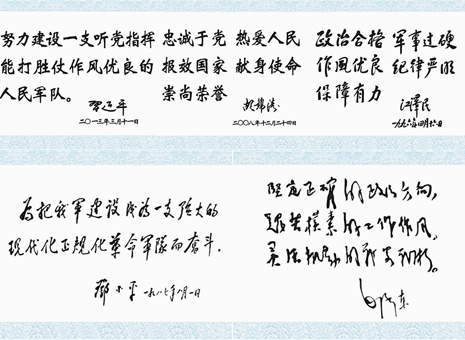 努力建设一支听党指挥
能打胜仗作风优良的
人民军队。
习近平
二〇一三年三月十一日
忠诚于党 热爱人民
报效国家 献身使命
崇尚荣誉
胡锦涛
二〇〇八年十二月二十四日
政治合格 军事过硬
作风优良 纪律严明
保障有力
江泽民
为把我军建设成为一支强大的
现代化正规化革命军队而奋斗.
邓小平 一九八七年八月一日
坚定正确的政治方向,
艰苦朴素的工作作风,
灵活机动的战略战术。
毛泽东